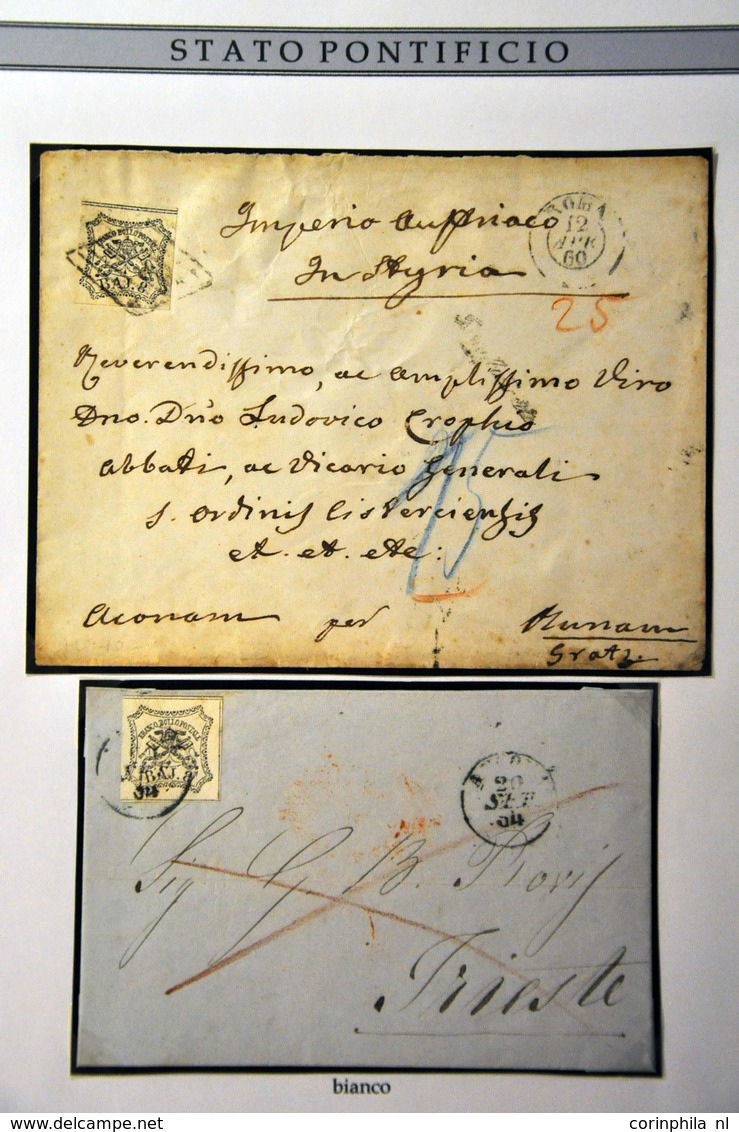 STATO PONTIFICIO
FRANCO BOLLO POSTALE
BAJ. 8
Imperio austriaco
In Styria
ROMA
12
APR
60
25
Reverendissimo, ac amplissimo Viro
Dno. Dno Ludovico Crophio
abbati, ac Vicario Generali
s. ordinis Cisterciensis
et. et. etc:
Aconam per Runam
Gratz.
FRANCO BOLLO POSTALE
BAJ. 8
54
20
SET
54
Sig G. B. Rovis
Trieste
bianco
corinphila nl